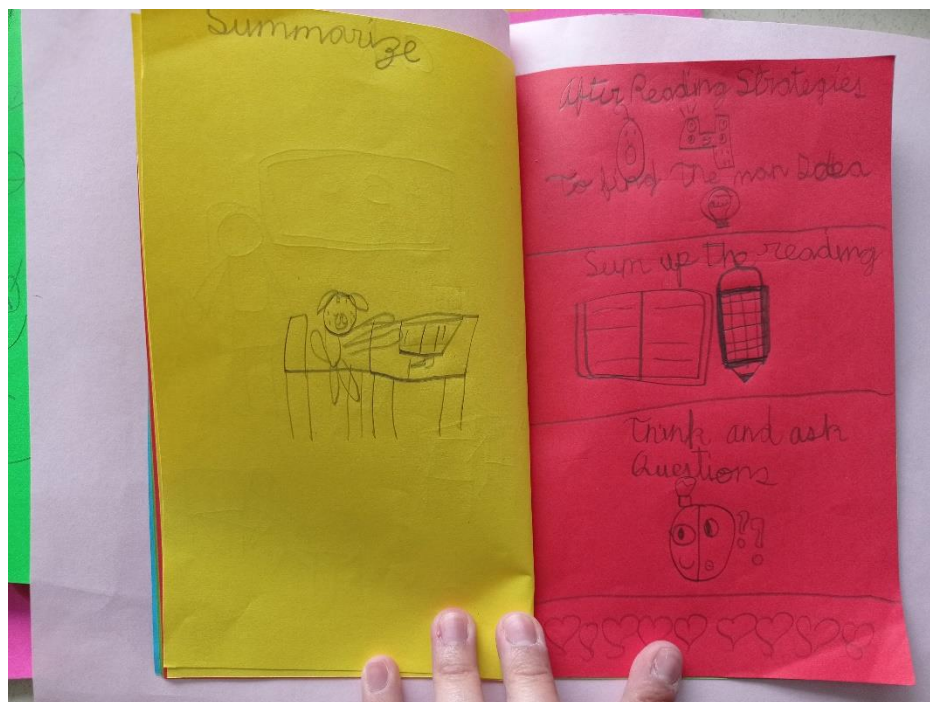 Summarize
After Reading Strategies
To find the man Idea
Sum up the reading
Think and ask
Questions
??